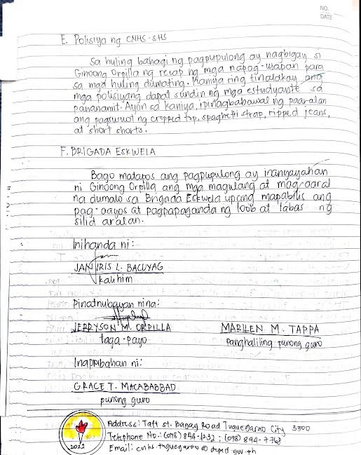 NO.
DATE
E. Polisiya ng CNHS-SHS
Sa huling bahagi ng pagpupulong ay nagbigay si
Ginoong Orpilla ng recap ng mga napag-usapan para
sa mga huling dumating. Kaniya ring tinalakay ang
mga polisiyang dapat sundin ng mga estudyante sa
pananamit. Ayon sa kaniya, ipinagbabawal ng paaralan
ang pagsuot ng cropped top, spaghetti strap, ripped jeans,
at short shorts.
F. BRIGADA ESKWELA
Bago matapos ang pagpupulong ay inanyayahan
ni Ginoong Orpilla ang mga magulang at mag-aaral
na dumalo sa Brigada Eskwela upang mapabilis ang
pag-aayos at pagpapaganda ng loob at labas ng
silid aralan.
Inihanda ni:
JAN IRIS L. BACUYAG
Kalihim
Pinatnubayan nina:
JERRYSON M. ORPILLA MARILEN M. TAPPA
taga-payo Panghaliling punong guro
Inaprubahan ni:
GRACE T. MACABABBAD
punong guro
Address: Taft st. Bagay Road Tuguegarao City 3500
Telephone No.: (078)
Email: cnhs
2023